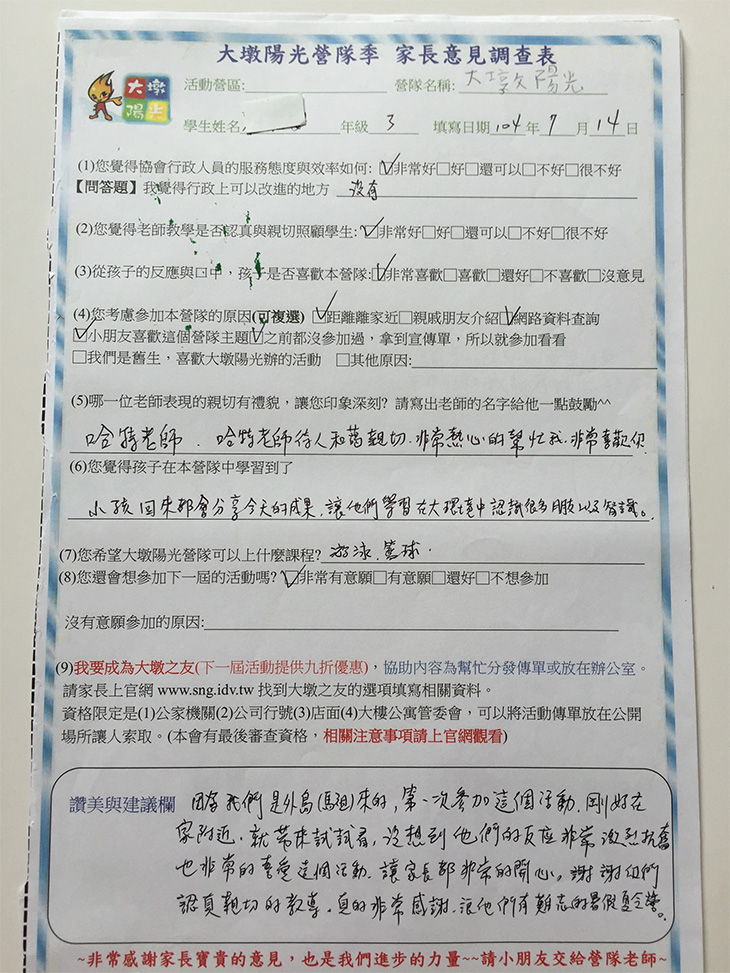 大墩陽光營隊季 家長意見調查表
大墩
陽光
活動營區: 營隊名稱: 大墩陽光
學生姓名 年級 3 填寫日期 104 年 7 月 14 日
(1)您覺得協會行政人員的服務態度與效率如何: ☑非常好□好□還可以□不好□很不好
【問答題】我覺得行政上可以改進的地方 沒有
(2)您覺得老師教學是否認真與親切照顧學生: ☑非常好□好□還可以□不好□很不好
(3)從孩子的反應與口中，孩子是否喜歡本營隊:☑非常喜歡□喜歡□還好□不喜歡□沒意見
(4)您考慮參加本營隊的原因(可複選) ☑距離離家近□親戚朋友介紹☑網路資料查詢
☑小朋友喜歡這個營隊主題☑之前都沒參加過，拿到宣傳單，所以就參加看看
□我們是舊生，喜歡大墩陽光辦的活動 □其他原因:
(5)哪一位老師表現的親切有禮貌，讓您印象深刻? 請寫出老師的名字給他一點鼓勵^^
哈特老師．哈特老師待人和藹親切．非常熱心的幫忙我．非常喜歡你
(6)您覺得孩子在本營隊中學習到了
小孩回來都會分享今天的成果．讓他們學習在大環境中認識很多朋友以及知識。
(7)您希望大墩陽光營隊可以上什麼課程? 游泳．籃球．
(8)您還會想參加下一屆的活動嗎? ☑非常有意願□有意願□還好□不想參加
沒有意願參加的原因:
(9)我要成為大墩之友(下一屆活動提供九折優惠)，協助內容為幫忙分發傳單或放在辦公室。
請家長上官網 www.sng.idv.tw 找到大墩之友的選項填寫相關資料。
資格限定是(1)公家機關(2)公司行號(3)店面(4)大樓公寓管委會，可以將活動傳單放在公開
場所讓人索取。(本會有最後審查資格，相關注意事項請上官網觀看)
讚美與建議欄 因為我們是外島(馬祖)來的，第一次參加這個活動．剛好在
家附近．就帶來試試看，沒想到他們的反應非常激烈抗奮
也非常的喜愛這個活動．讓家長都非常的開心。謝謝你們
認真親切的教導．真的非常感謝．讓他們有難忘的暑假夏令營。
~非常感謝家長寶貴的意見，也是我們進步的力量~~請小朋友交給營隊老師~